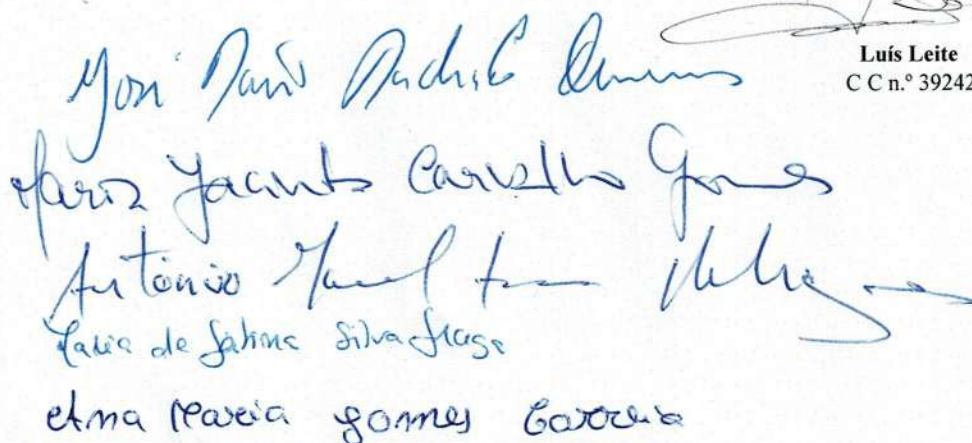 Luís Leite
C C n.º 39242
José
Maria Jacinta Carvalho Gomes
António Manuel
Maria de Fátima Silva Fraga
Ana Maria Gomes Correia